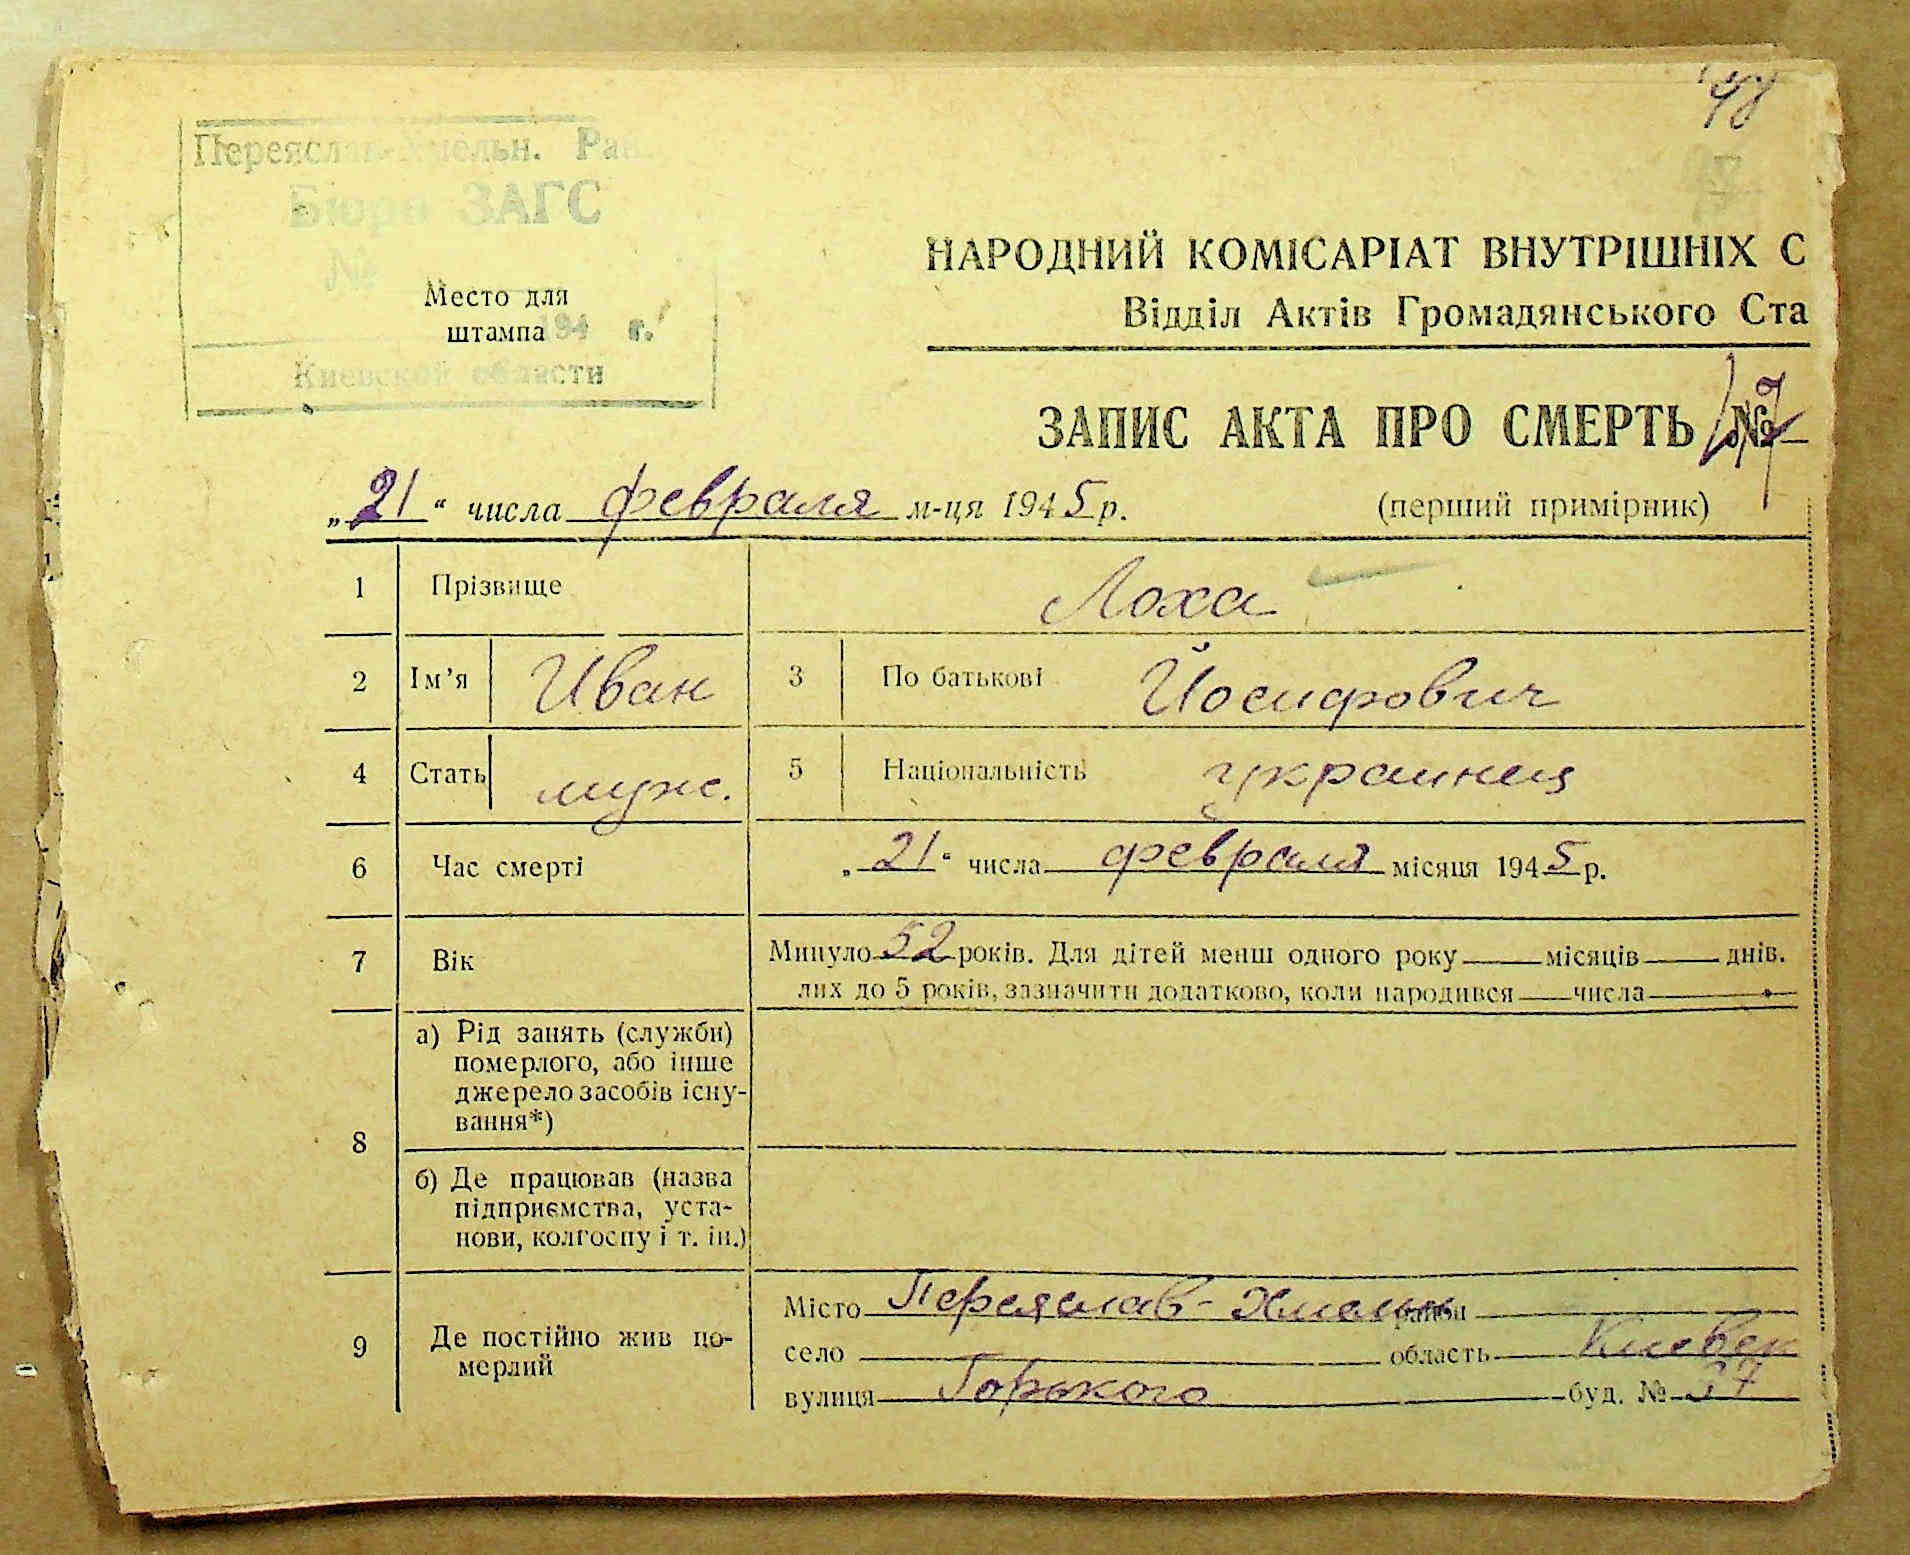 48
Переяслав-Хмельн. Рай.
Бюро ЗАГС
№
Место для
штампа
194 г.
Киевской области
НАРОДНИЙ КОМІСАРІАТ ВНУТРІШНІХ С
Відділ Актів Громадянського Ста
ЗАПИС АКТА ПРО СМЕРТЬ № 47
„21“ числа февраля м-ця 1945 р.
(перший примірник)
1 Прізвище Лоха
2 Ім’я Иван 3 По батькові Йосифович
4 Стать муж. 5 Національність украинец
6 Час смерті „21“ числа февраля місяця 1945 р.
7 Вік Минуло 52 років. Для дітей менш одного року місяців днів.
лих до 5 років, зазначити додатково, коли народився числа
8 а) Рід занять (служби)
померлого, або інше
джерело засобів існу-
вання*)
б) Де працював (назва
підприємства, уста-
нови, колгоспу і т. ін.)
9 Де постійно жив по-
мерлий
Місто Переяслав-Хмельн район
село область Киевск
вулиця Горького буд. № 37